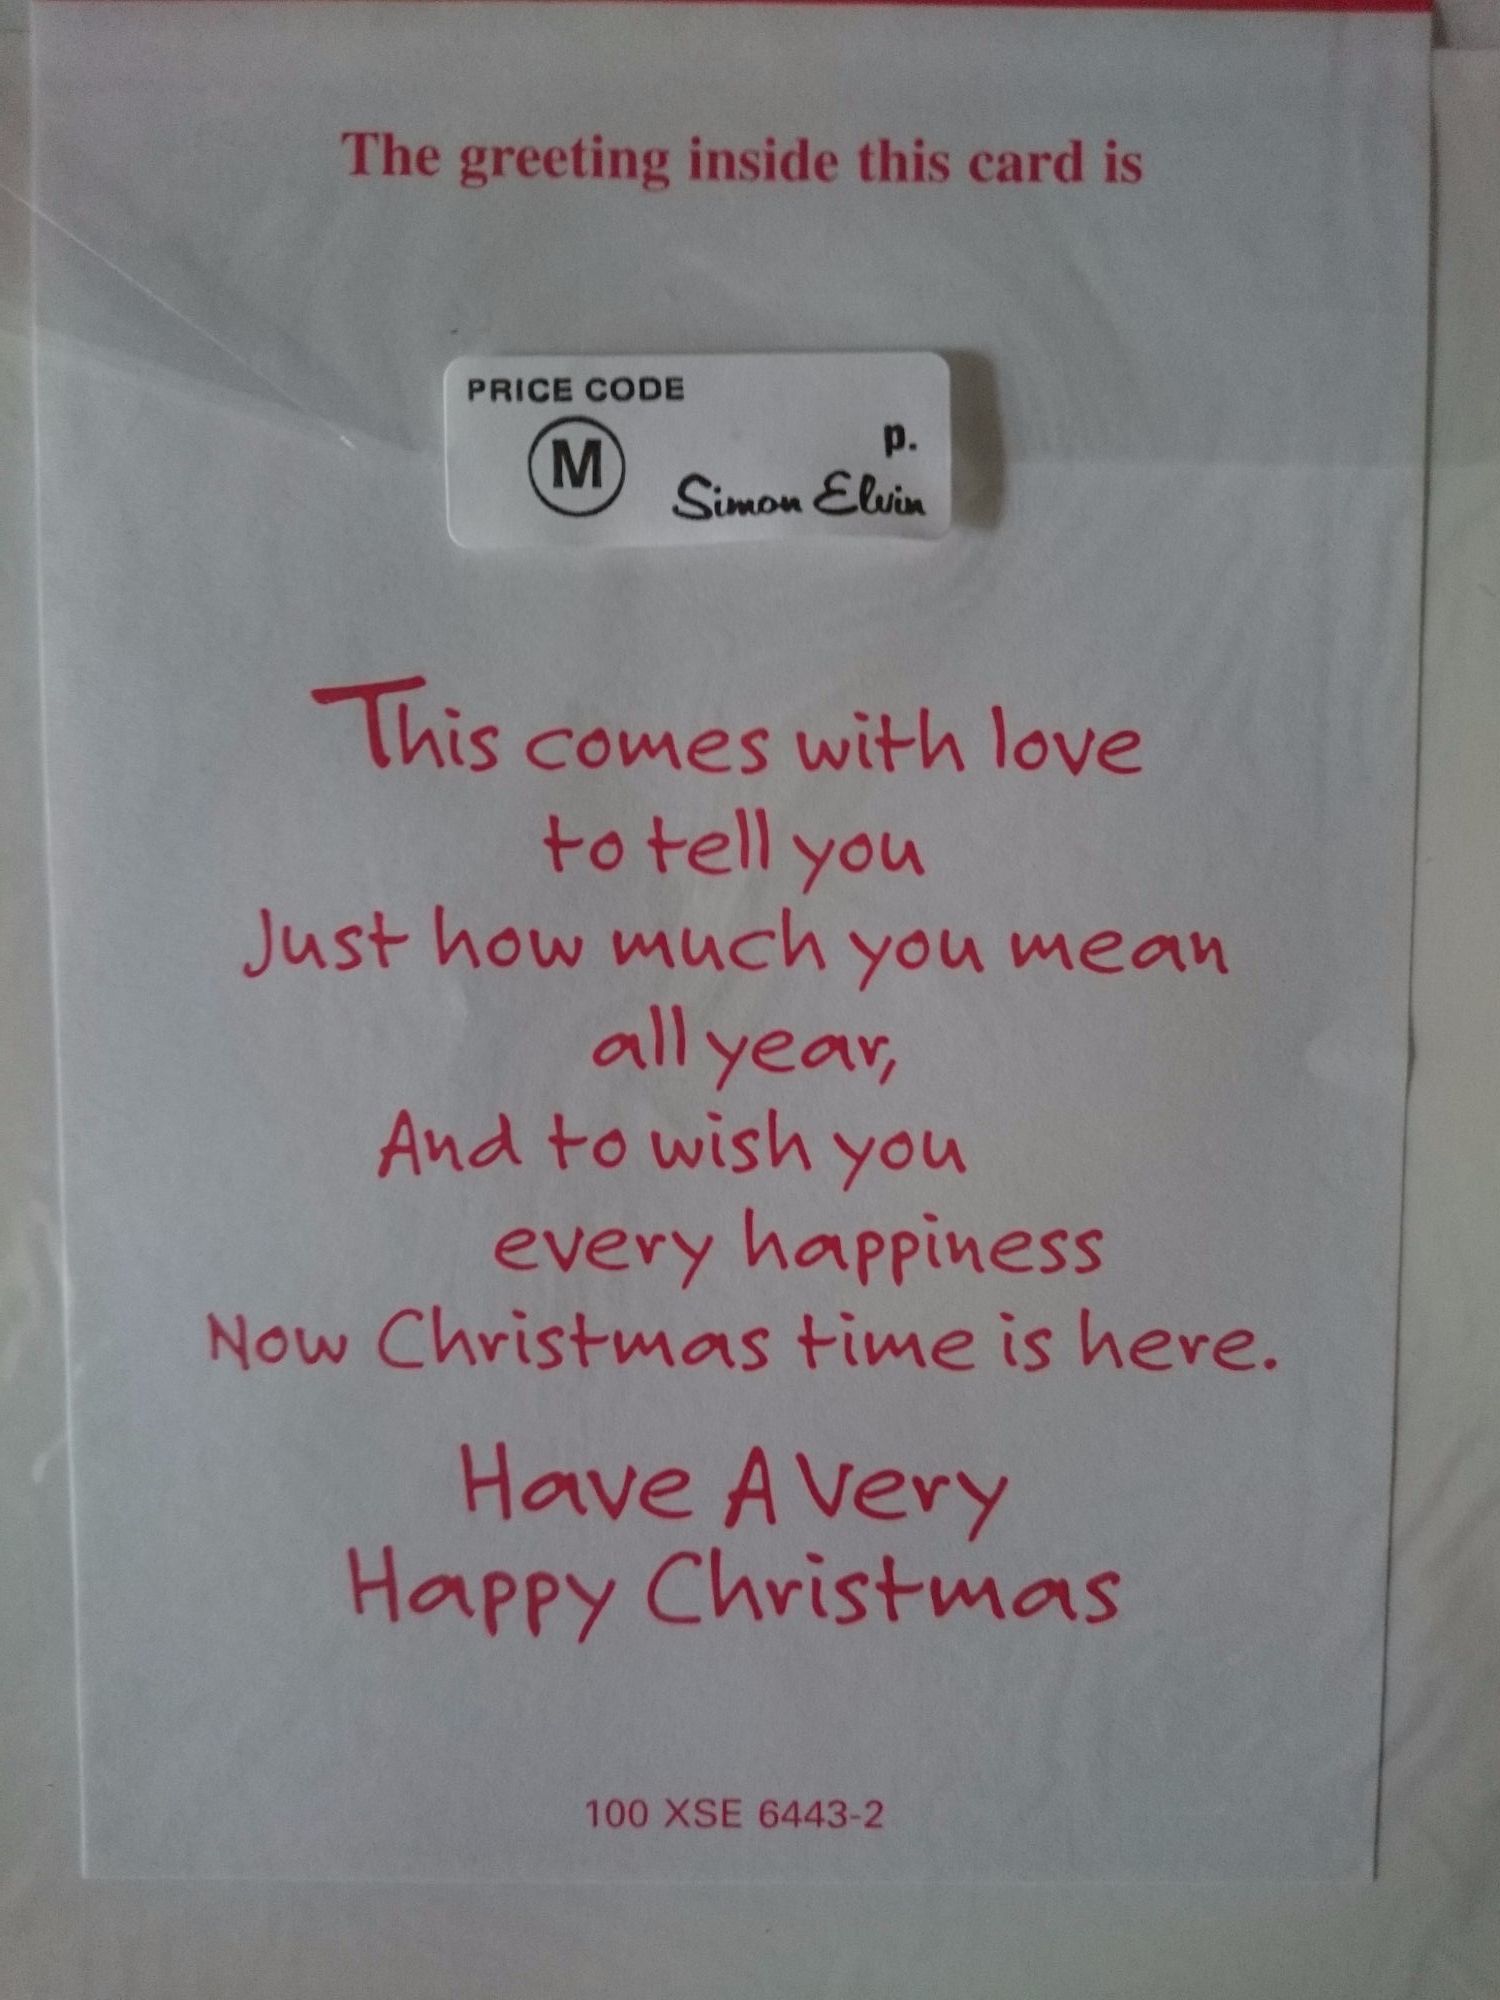 The greeting inside this card is
PRICE CODE
M
p.
Simon Elvin
This comes with love
to tell you
Just how much you mean
all year,
And to wish you
every happiness
Now Christmas time is here.
Have A Very
Happy Christmas
100 XSE 6443-2